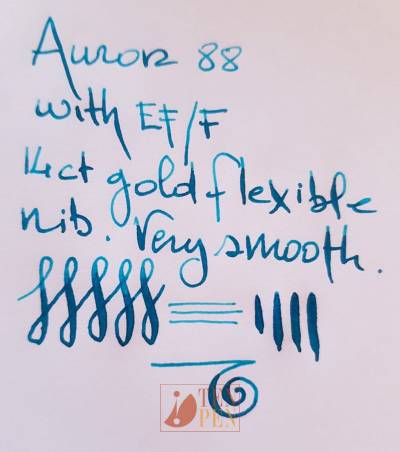 Aurora 88
with EF/F
14ct gold flexible
nib. Very smooth.
TEN
PEN